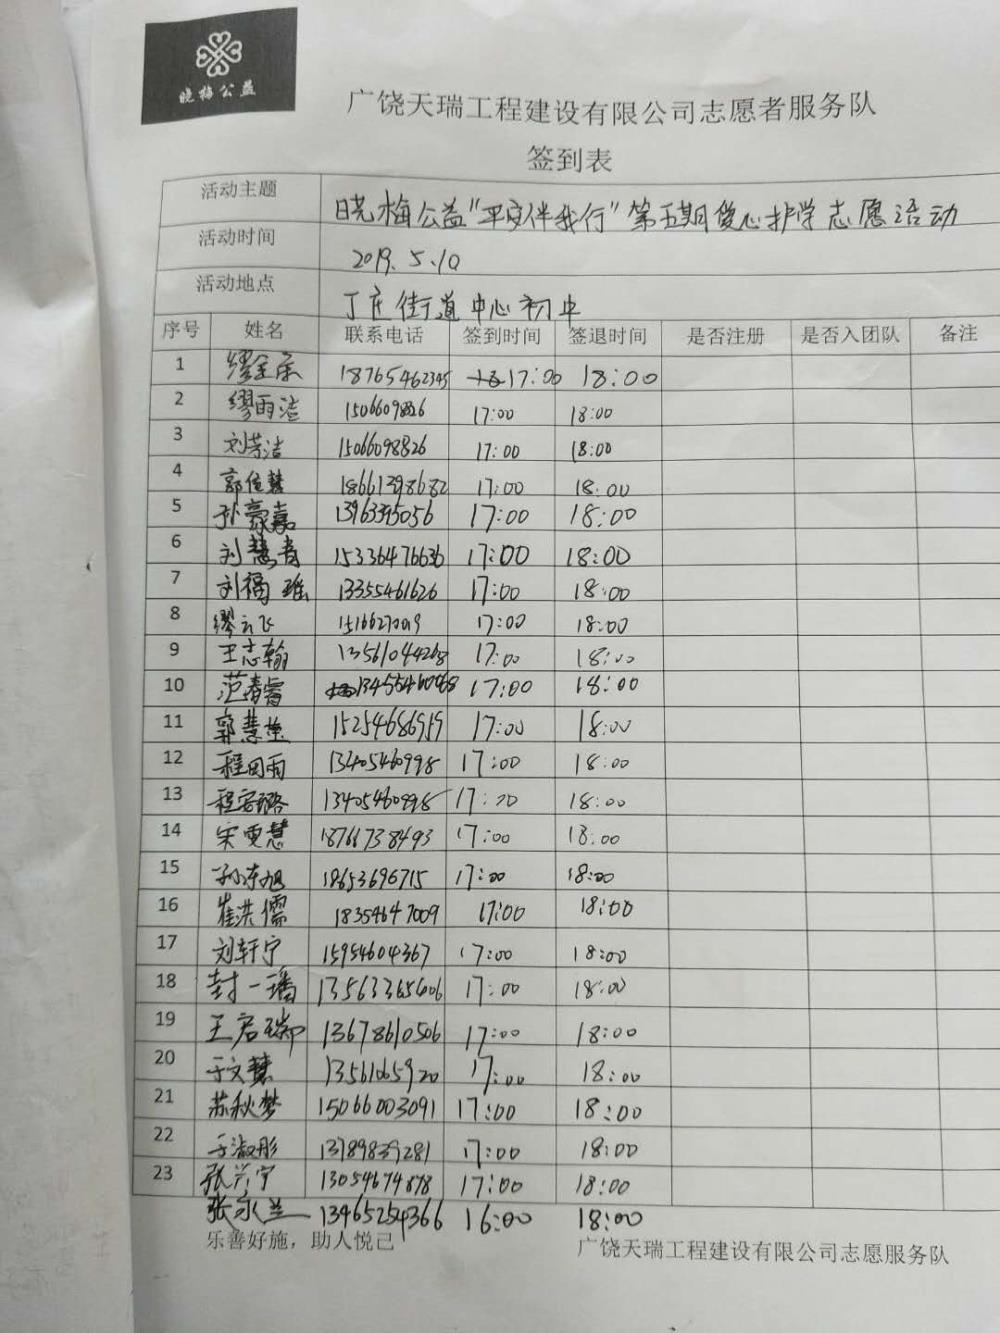 晓梅公益
广饶天瑞工程建设有限公司志愿者服务队
签到表
活动主题 晓梅公益"平安伴我行"第五期爱心护学志愿活动
活动时间 2019.5.10
活动地点 丁庄街道中心初中
序号 姓名 联系电话 签到时间 签退时间 是否注册 是否入团队 备注
1 18765462345 17:00 18:00
2 缪雨洁 15066098826 17:00 18:00
3 刘芳洁 15066098826 17:00 18:00
4 郭佳慧 18661398682 17:00 18:00
5 孙豪嘉 17:00 18:00
6 刘慧青 15336476636 17:00 18:00
7 刘福瑶 13355461626 17:00 18:00
8 缪云飞 17:00 18:00
9 王志翰 13561044268 17:00 18:00
10 范春睿 17:00 18:00
11 郭慧莹 15254686959 17:00 18:00
12 程田雨 13405460998 17:00 18:00
13 13405460998 17:00 18:00
14 宋雯慧 18766738493 17:00 18:00
15 孙东旭 18653696715 17:00 18:00
16 崔洪儒 18354647009 17:00 18:00
17 刘轩宁 15954604367 17:00 18:00
18 封一璠 13563365606 17:00 18:00
19 王君瑞 13678610506 17:00 18:00
20 于文慧 17:00 18:00
21 苏秋梦 15066003091 17:00 18:00
22 于淑彤 17:00 18:00
23 张兴宁 13054674878 17:00 18:00
张永兰 13465254366 16:00 18:00
乐善好施，助人悦己 广饶天瑞工程建设有限公司志愿服务队